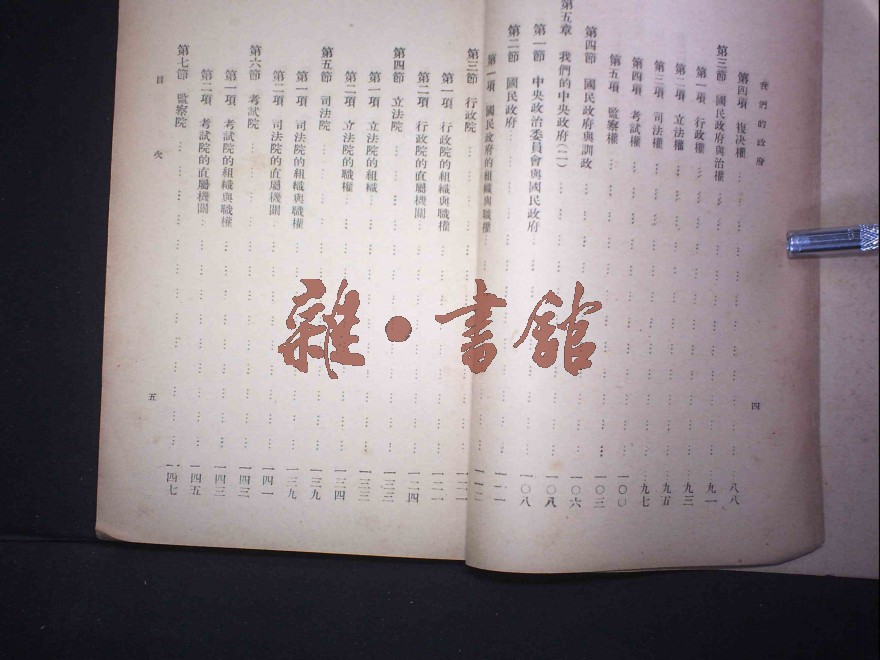 我們的政府 四
第四項 復決權……八八
第三節 國民政府與治權……九一
第一項 行政權……九三
第二項 立法權……九五
第三項 司法權……九七
第四項 考試權……一〇〇
第五項 監察權……一〇三
第四節 國民政府與訓政……一〇六
第五章 我們的中央政府(二)……一〇八
第一節 中央政治委員會與國民政府……一〇八
第二節 國民政府……一一一
第一項 國民政府的組織與職權……一一二
第三節 行政院……
第一項 行政院的組織與職權……一二一
第二項 行政院的直屬機關……一二四
第四節 立法院……一三三
第一項 立法院的組織……一三三
第二項 立法院的職權……一三四
第五節 司法院……一三九
第一項 司法院的組織與職權……一三九
第二項 司法院的直屬機關……一四一
第六節 考試院……一四三
第一項 考試院的組織與職權……一四三
第二項 考試院的直屬機關……一四五
第七節 監察院……一四七
目次 五
雜·書館